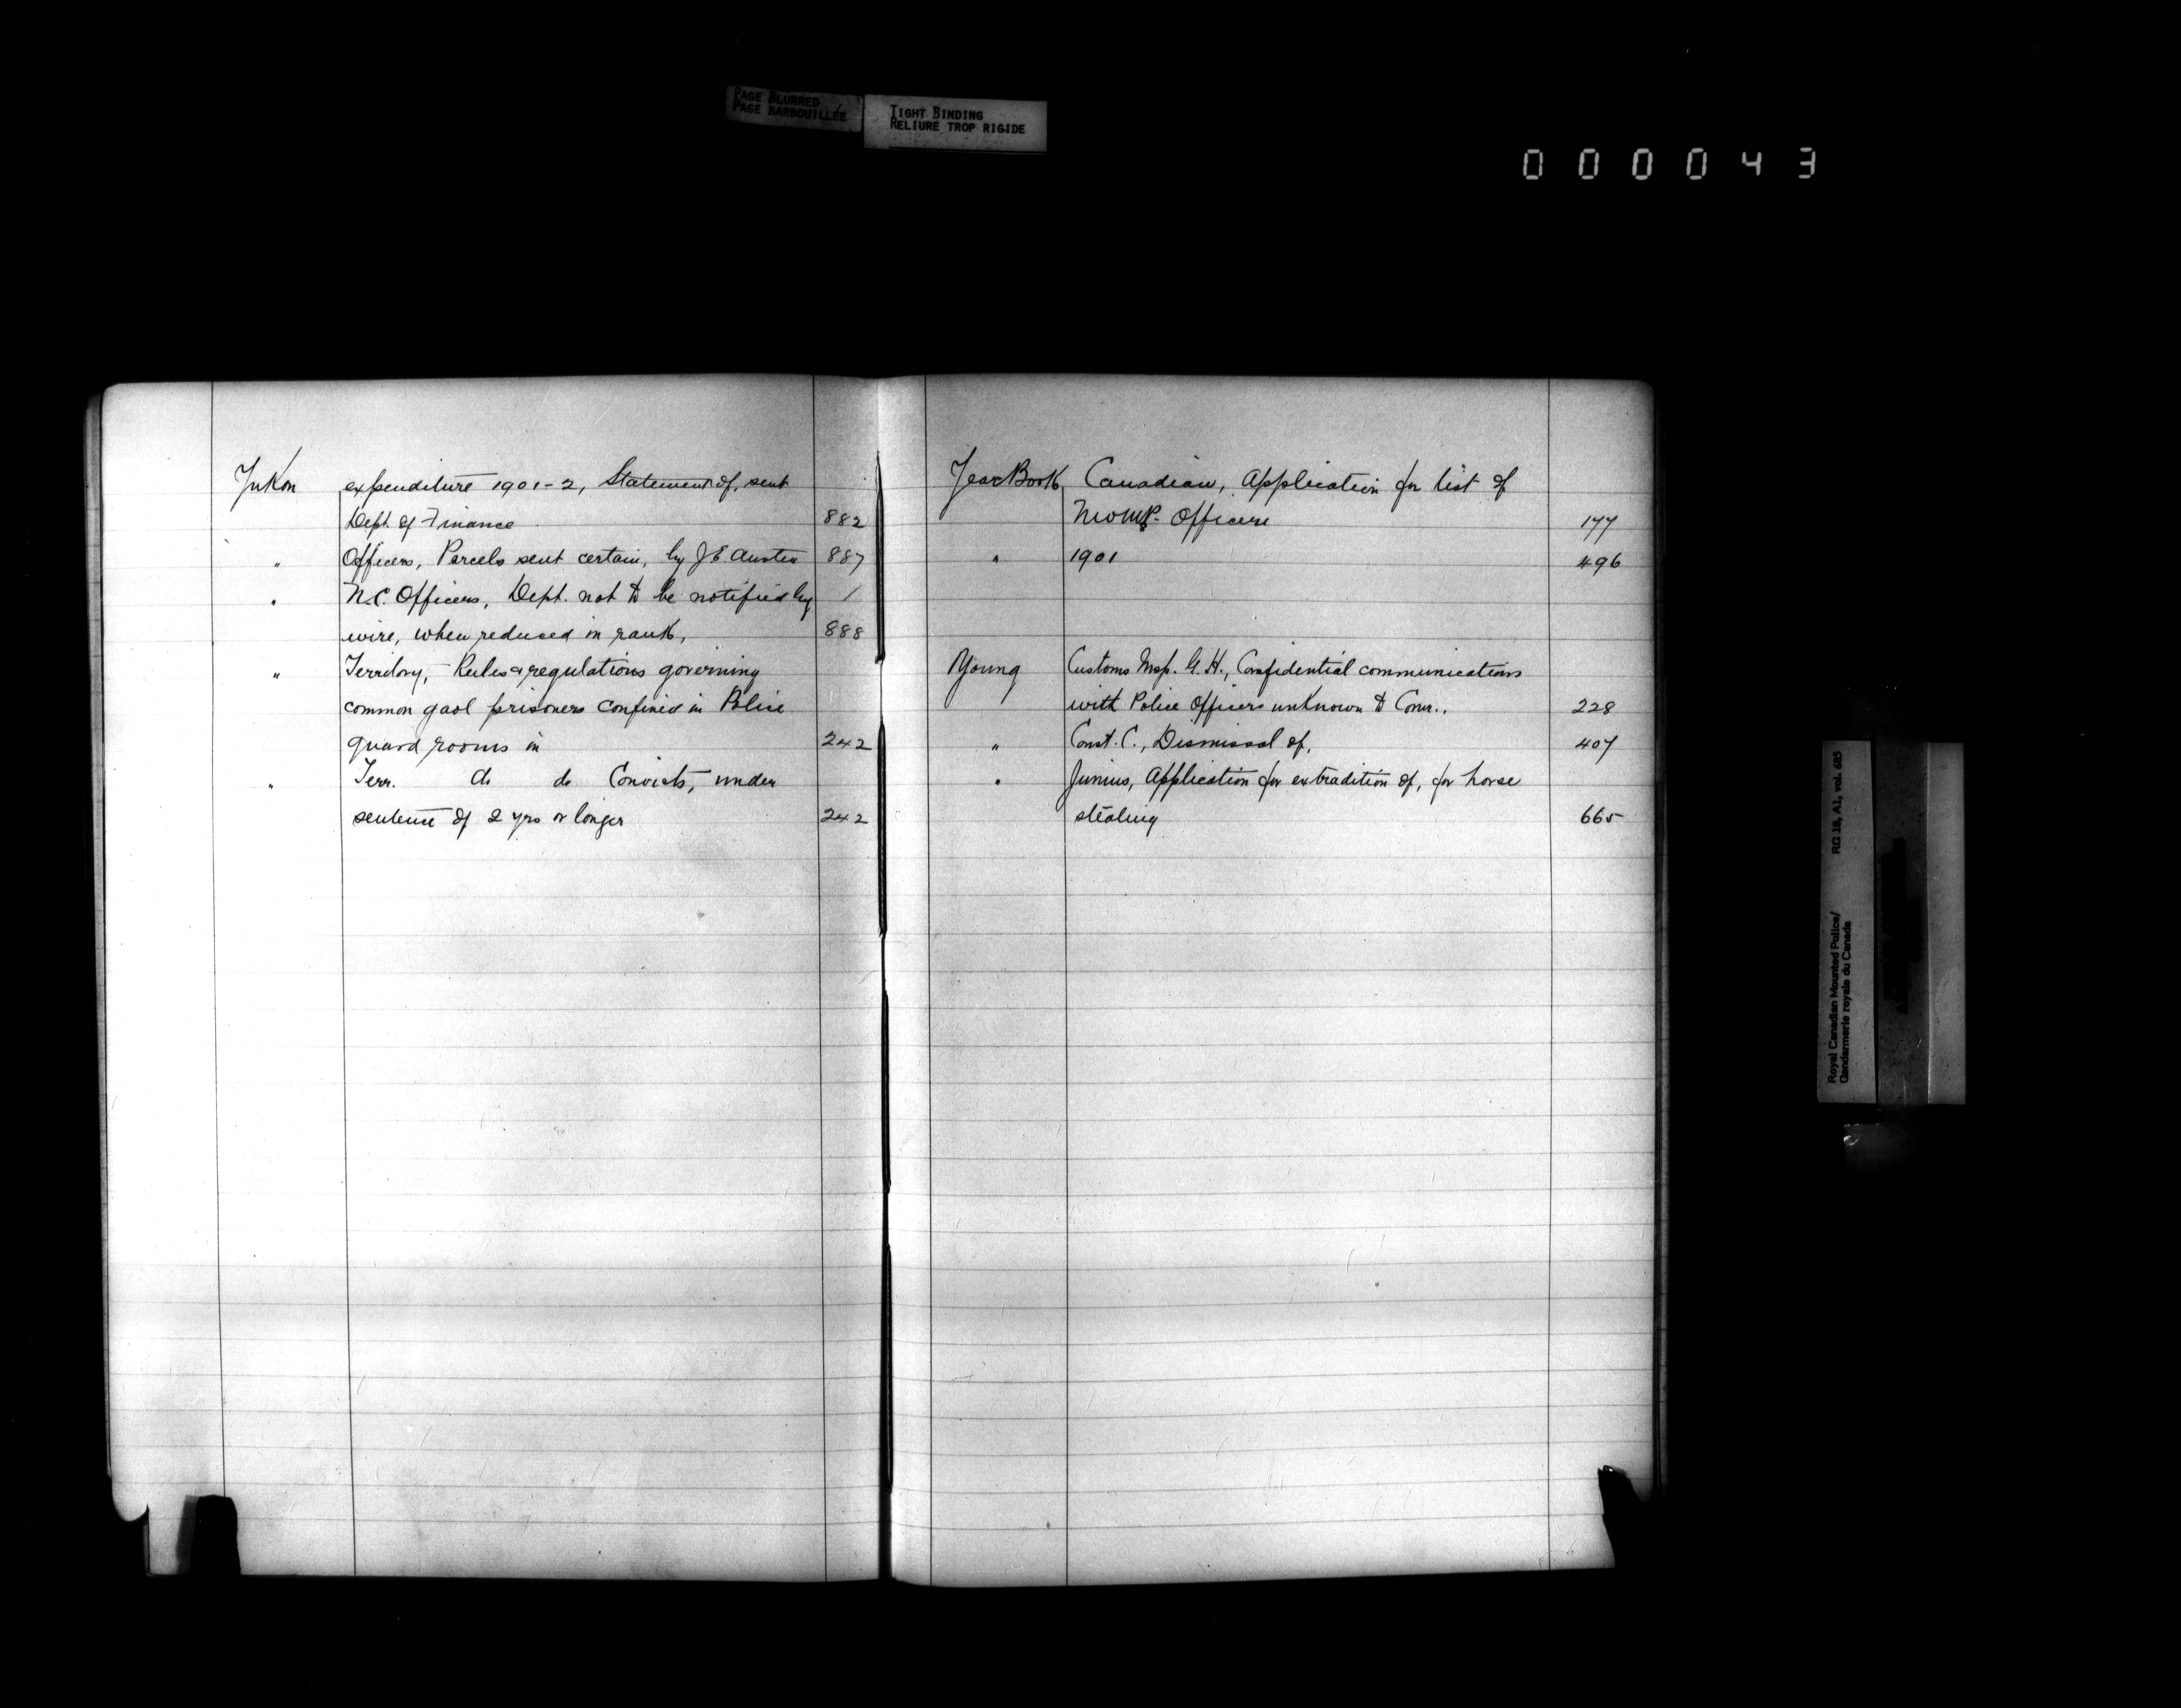 PAGE BLURRED
PAGE BARBOUILLÉE
TIGHT BINDING
RELIURE TROP RIGIDE
000043
Yukon expenditure 1901-2, Statement of, sent
Dept. of Finance 882
" Officers, Parcels sent certain, by J.E. Austin 887
" N.C. Officers, Dept. not to be notified by /
wire, when reduced in rank, 888
" Territory, - Rules & regulations governing
common gaol prisoners confined in Police
guard rooms in 242
" Terr. do do Convicts, under
sentence of 2 yrs or longer 242
Year Book Canadian, Application for list of
NWMP. Officers 177
" 1901 496
Young Customs Insp. G.H., Confidential communications
with Police Officers unknown to Comr.. 228
" Const. C., Dismissal of, 407
" Junius, Application for extradition of, for horse
stealing 665
Royal Canadian Mounted Police/ RG 18, A1, vol. 685
Gendarmerie royale du Canada